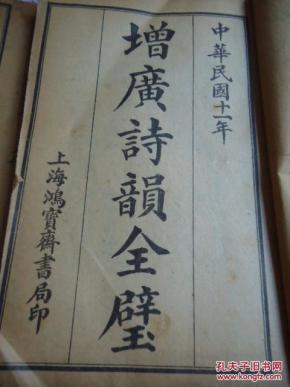 中華民國十一年
增廣詩韻全璧
上海鴻寶齋書局印
孔夫子旧书网